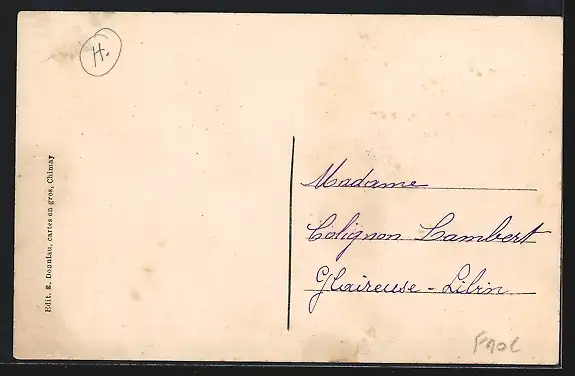 H.
Edit. E. Donniau, cartes en gros, Chimay
Madame
Colignon Lambert
Glaireuse - Libin